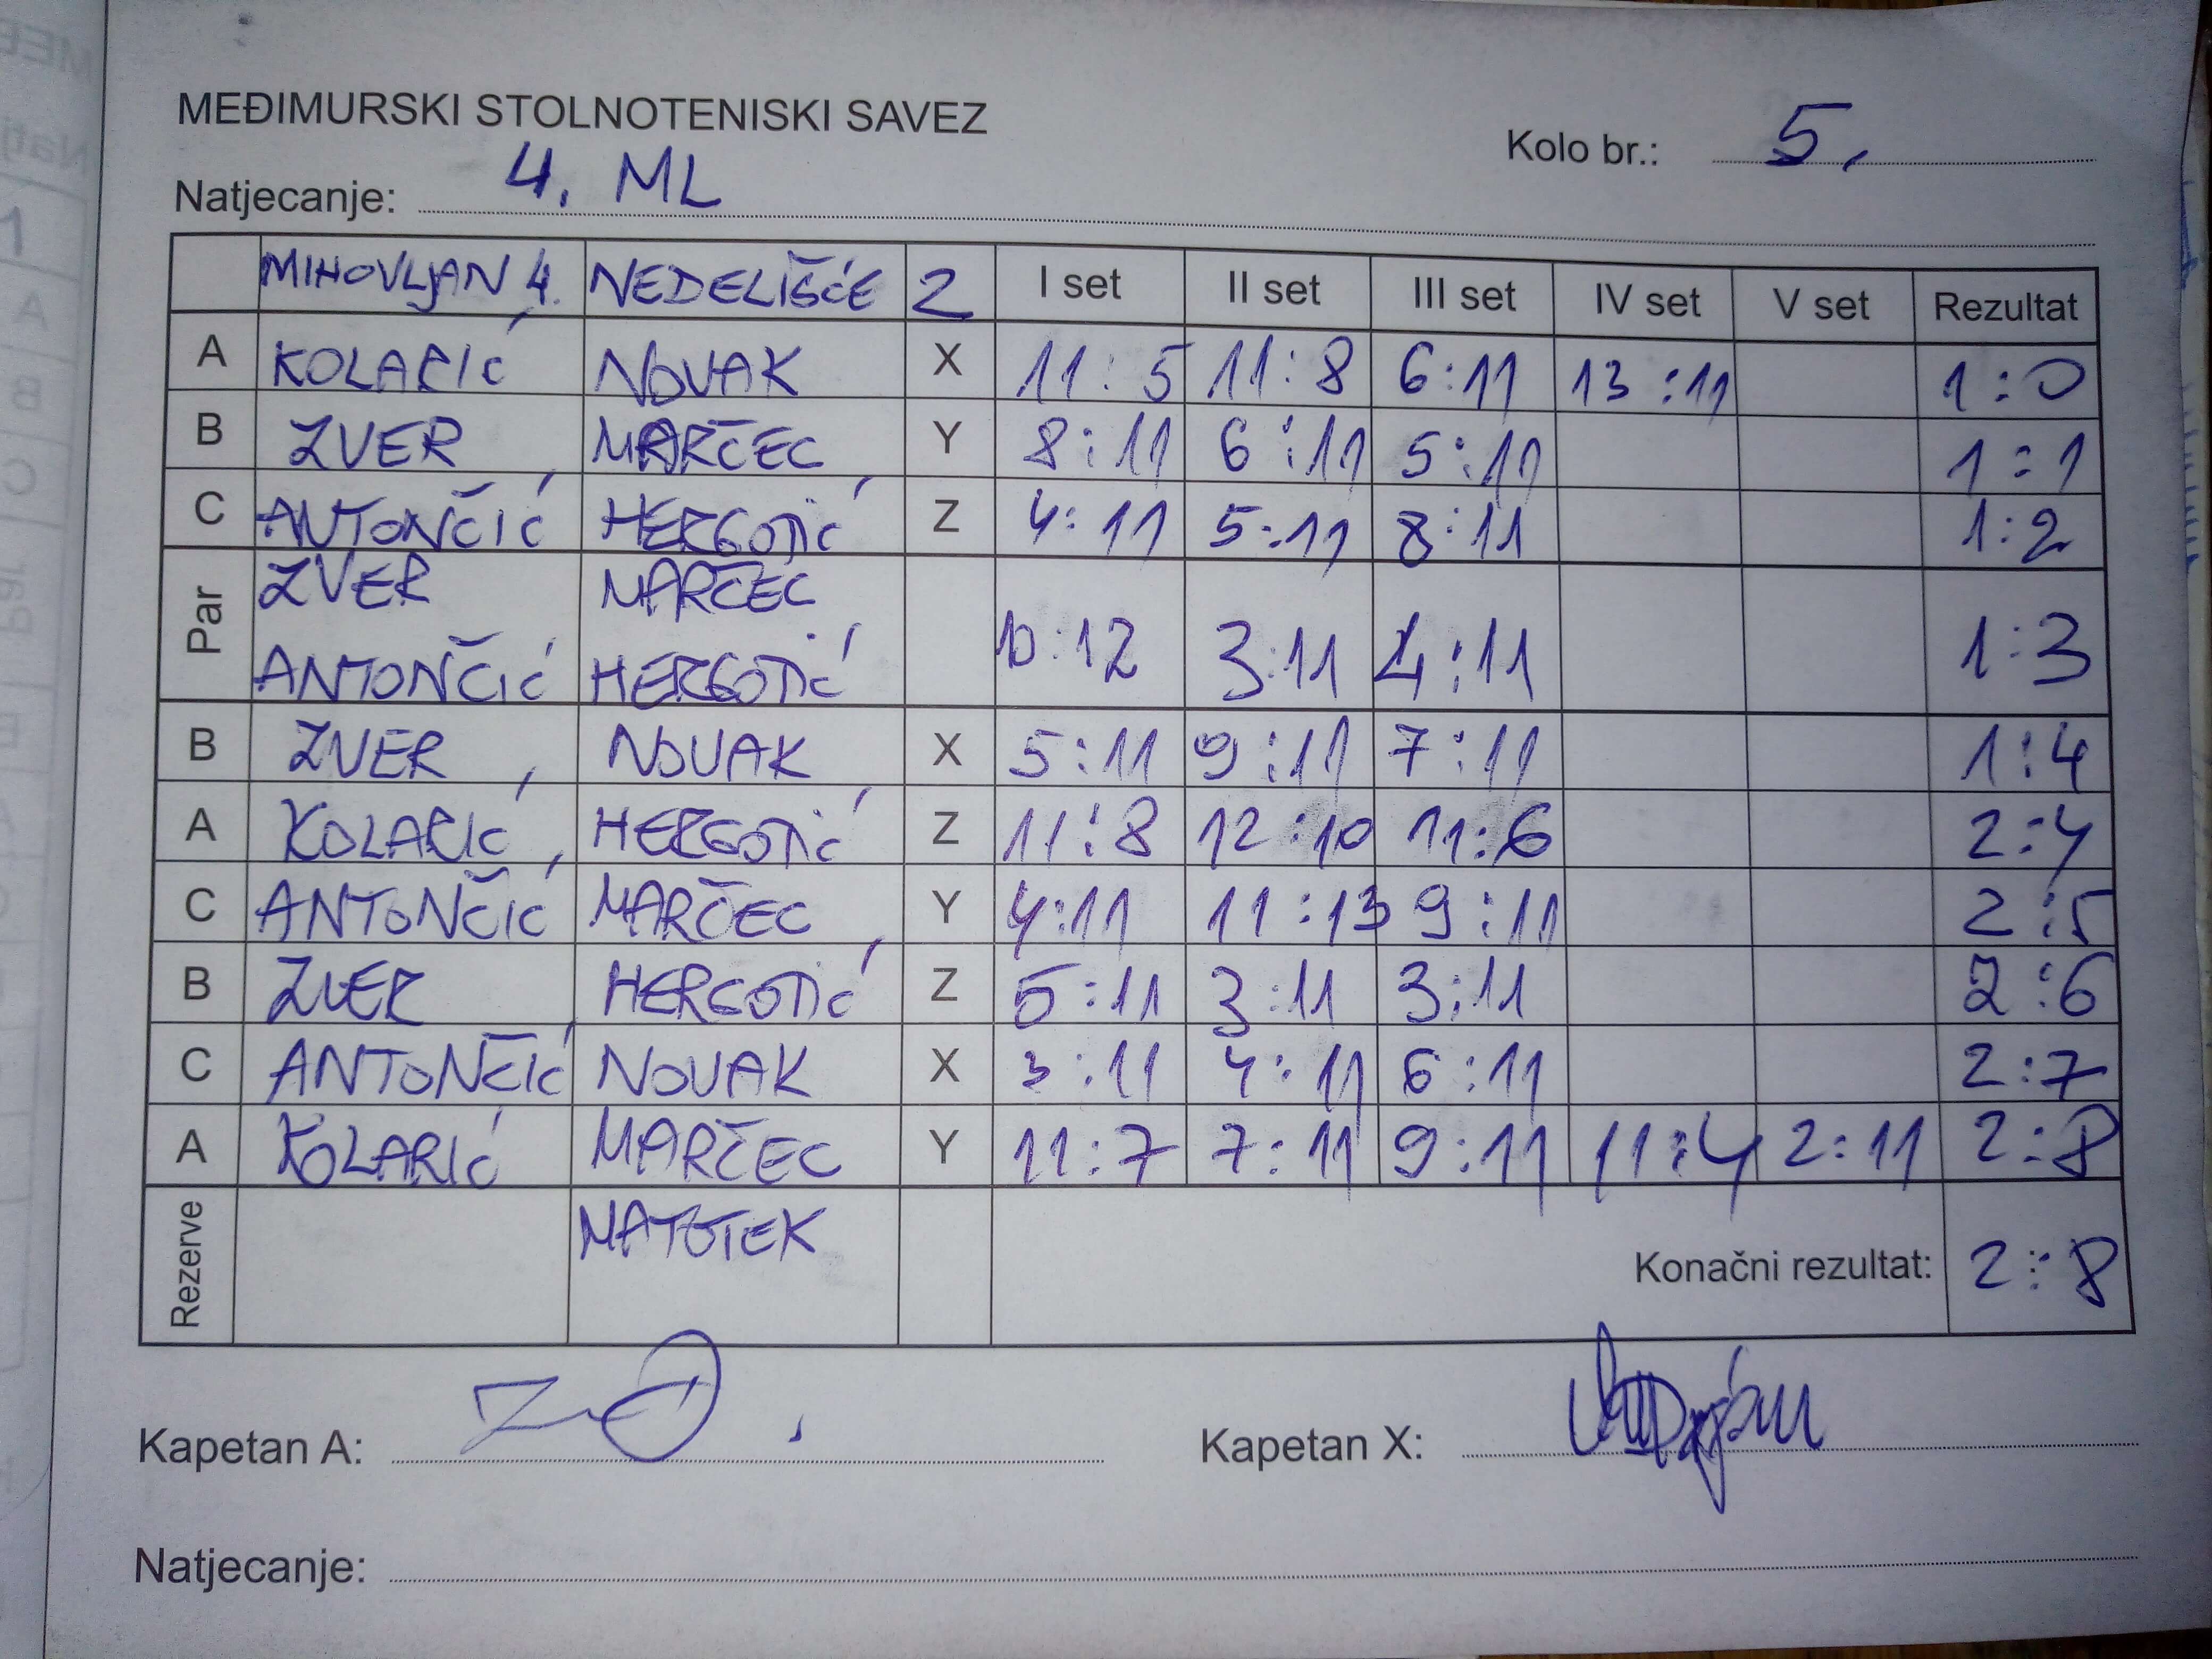 MEĐIMURSKI STOLNOTENISKI SAVEZ
Kolo br.: 5.
Natjecanje: 4. ML
MIHOVLJAN 4. NEDELIŠĆE 2 I set II set III set IV set V set Rezultat
A KOLARIĆ NOVAK X 11:5 11:8 6:11 13:11 1:0
B ZVER MARČEC Y 8:11 6:11 5:11 1:1
C ANTONČIĆ HERGOTIĆ Z 4:11 5:11 8:11 1:2
Par ZVER MARČEC
ANTONČIĆ HERGOTIĆ 10:12 3:11 4:11 1:3
B ZVER NOVAK X 5:11 9:11 7:11 1:4
A KOLARIĆ HERGOTIĆ Z 11:8 12:10 11:6 2:4
C ANTONČIĆ MARČEC Y 4:11 11:13 9:11 2:5
B ZVER HERGOTIĆ Z 5:11 3:11 3:11 2:6
C ANTONČIĆ NOVAK X 3:11 4:11 6:11 2:7
A KOLARIĆ MARČEC Y 11:7 7:11 9:11 11:4 2:11 2:8
Rezerve MATOTEK
Konačni rezultat: 2:8
Kapetan A: Kapetan X:
Natjecanje: